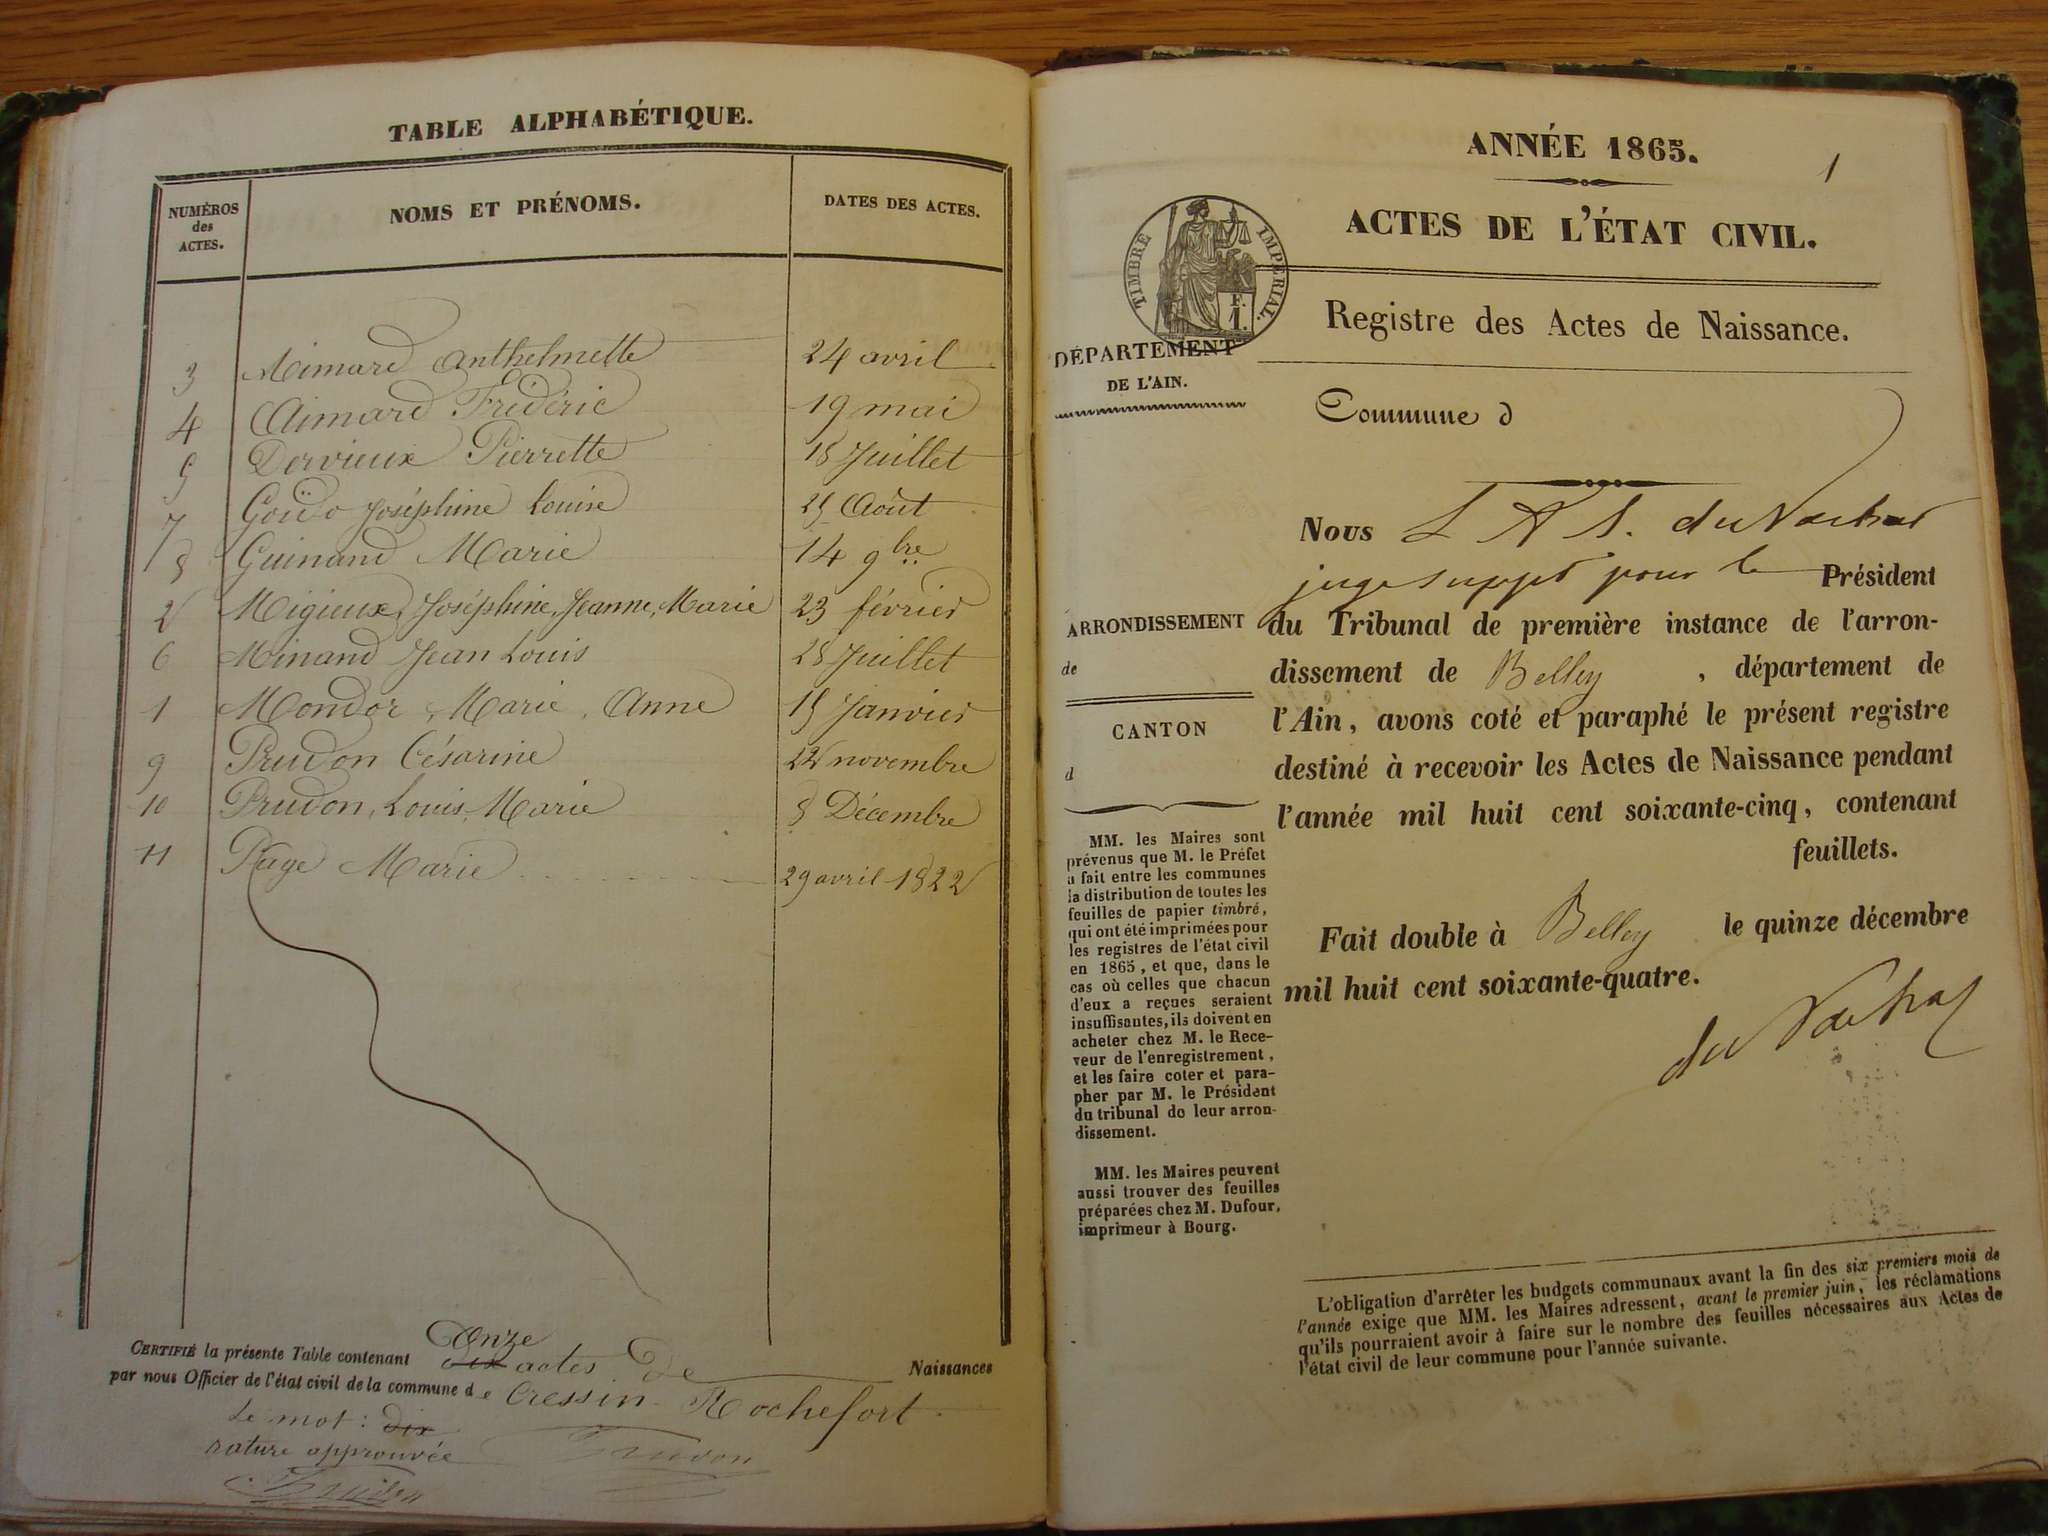 TABLE ALPHABÉTIQUE.
NUMÉROS des ACTES.
NOMS ET PRÉNOMS.
DATES DES ACTES.
3 Aimard Anthelmette 24 avril
4 Aimard Frédéric 19 mai
5 Dervieux Pierrette 18 Juillet
7 Goddo Joséphine Louise 25 Août
8 Guinand Marie 14 9bre
2 Migieux, Joséphine, Jeanne, Marie 23 février
6 Minand Jean Louis 28 Juillet
1 Mondor, Marie, Anne 15 Janvier
9 Prudon Césarine 22 novembre
10 Prudon, Louis, Marie 8 Décembre
11 Page Marie 29 avril 1822
CERTIFIÉ la présente Table contenant Onze dix actes De Naissances
par nous Officier de l'état civil de la commune de Cressin-Rochefort.
Le mot: dix
rature approuvée
Prudon
Prudon
ANNÉE 1865.
1
ACTES DE L'ÉTAT CIVIL.
TIMBRE IMPÉRIAL.
F.
1.
Registre des Actes de Naissance.
DÉPARTEMENT
DE L'AIN.
Commune d
Nous L A S. du
juge suppt pour le Président
ARRONDISSEMENT
de
CANTON
d
du Tribunal de première instance de l'arron-
dissement de Belley, département de
l'Ain, avons coté et paraphé le présent registre
destiné à recevoir les Actes de Naissance pendant
l'année mil huit cent soixante-cinq, contenant
feuillets.
Fait double à Belley le quinze décembre
mil huit cent soixante-quatre.
du
MM. les Maires sont
prévenus que M. le Préfet
a fait entre les communes
la distribution de toutes les
feuilles de papier timbré,
qui ont été imprimées pour
les registres de l'état civil
en 1865, et que, dans le
cas où celles que chacun
d'eux a reçues seraient
insuffisantes, ils doivent en
acheter chez M. le Rece-
veur de l'enregistrement,
et les faire coter et para-
pher par M. le Président
du tribunal de leur arron-
dissement.
MM. les Maires peuvent
aussi trouver des feuilles
préparées chez M. Dufour,
imprimeur à Bourg.
L'obligation d'arrêter les budgets communaux avant la fin des six premiers mois de
l'année exige que MM. les Maires adressent, avant le premier juin, les réclamations
qu'ils pourraient avoir à faire sur le nombre des feuilles nécessaires aux Actes de
l'état civil de leur commune pour l'année suivante.